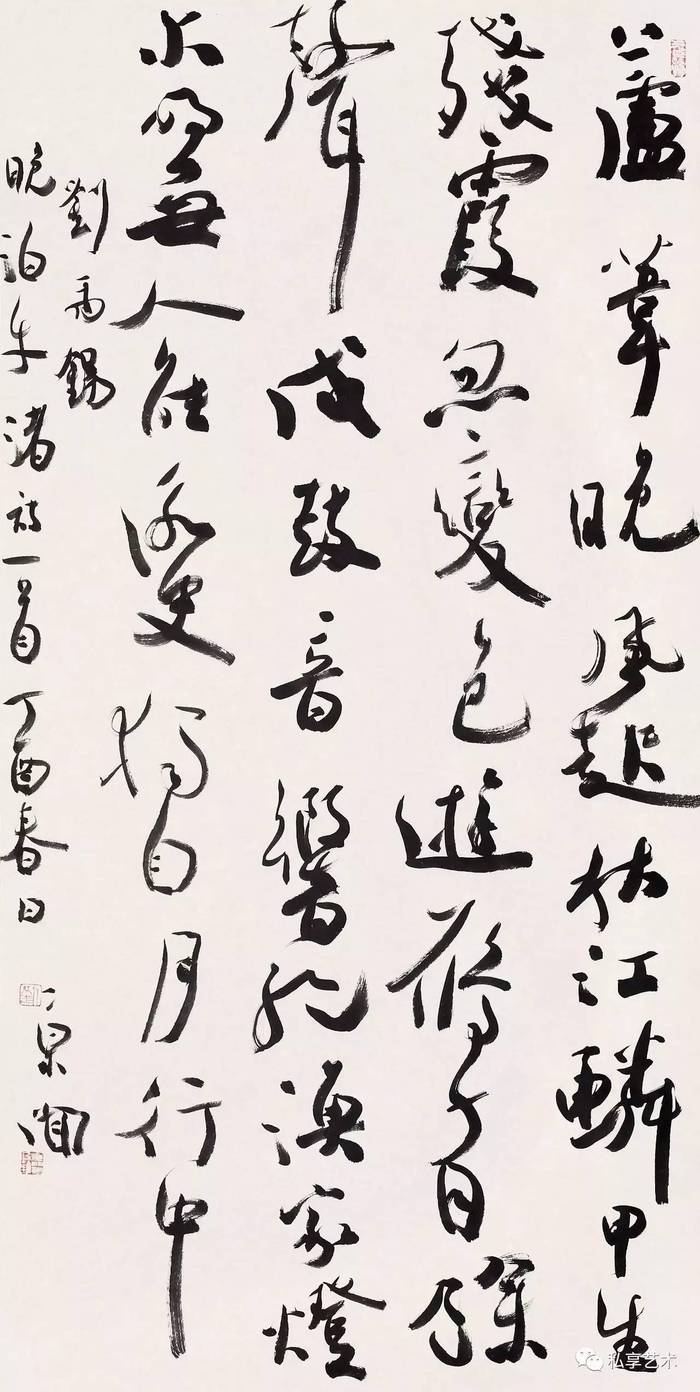 蘆葦晚風起秋江鱗甲生
殘霞忽變色遊雁有餘
聲戍鼓音響絕漁家燈
火明無人能詠史獨自月行中
劉禹錫
晚泊牛渚詩一首丁酉春日
私享艺术